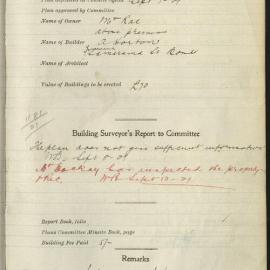 Plan approved by Committee
Name of Owner Mr Rae
above premises
Name of Builder A Horton
St Bondi
Name of Architect
Value of Buildings to be erected £70
Building Surveyor's Report to Committee
The plan does not give sufficient information
Sept 8-09
Mr Mackay has inspected the property
Sept 10-09
Report Book, folio
Plans Committee Minute Book, page
Building Fee Paid 5/-
Remarks